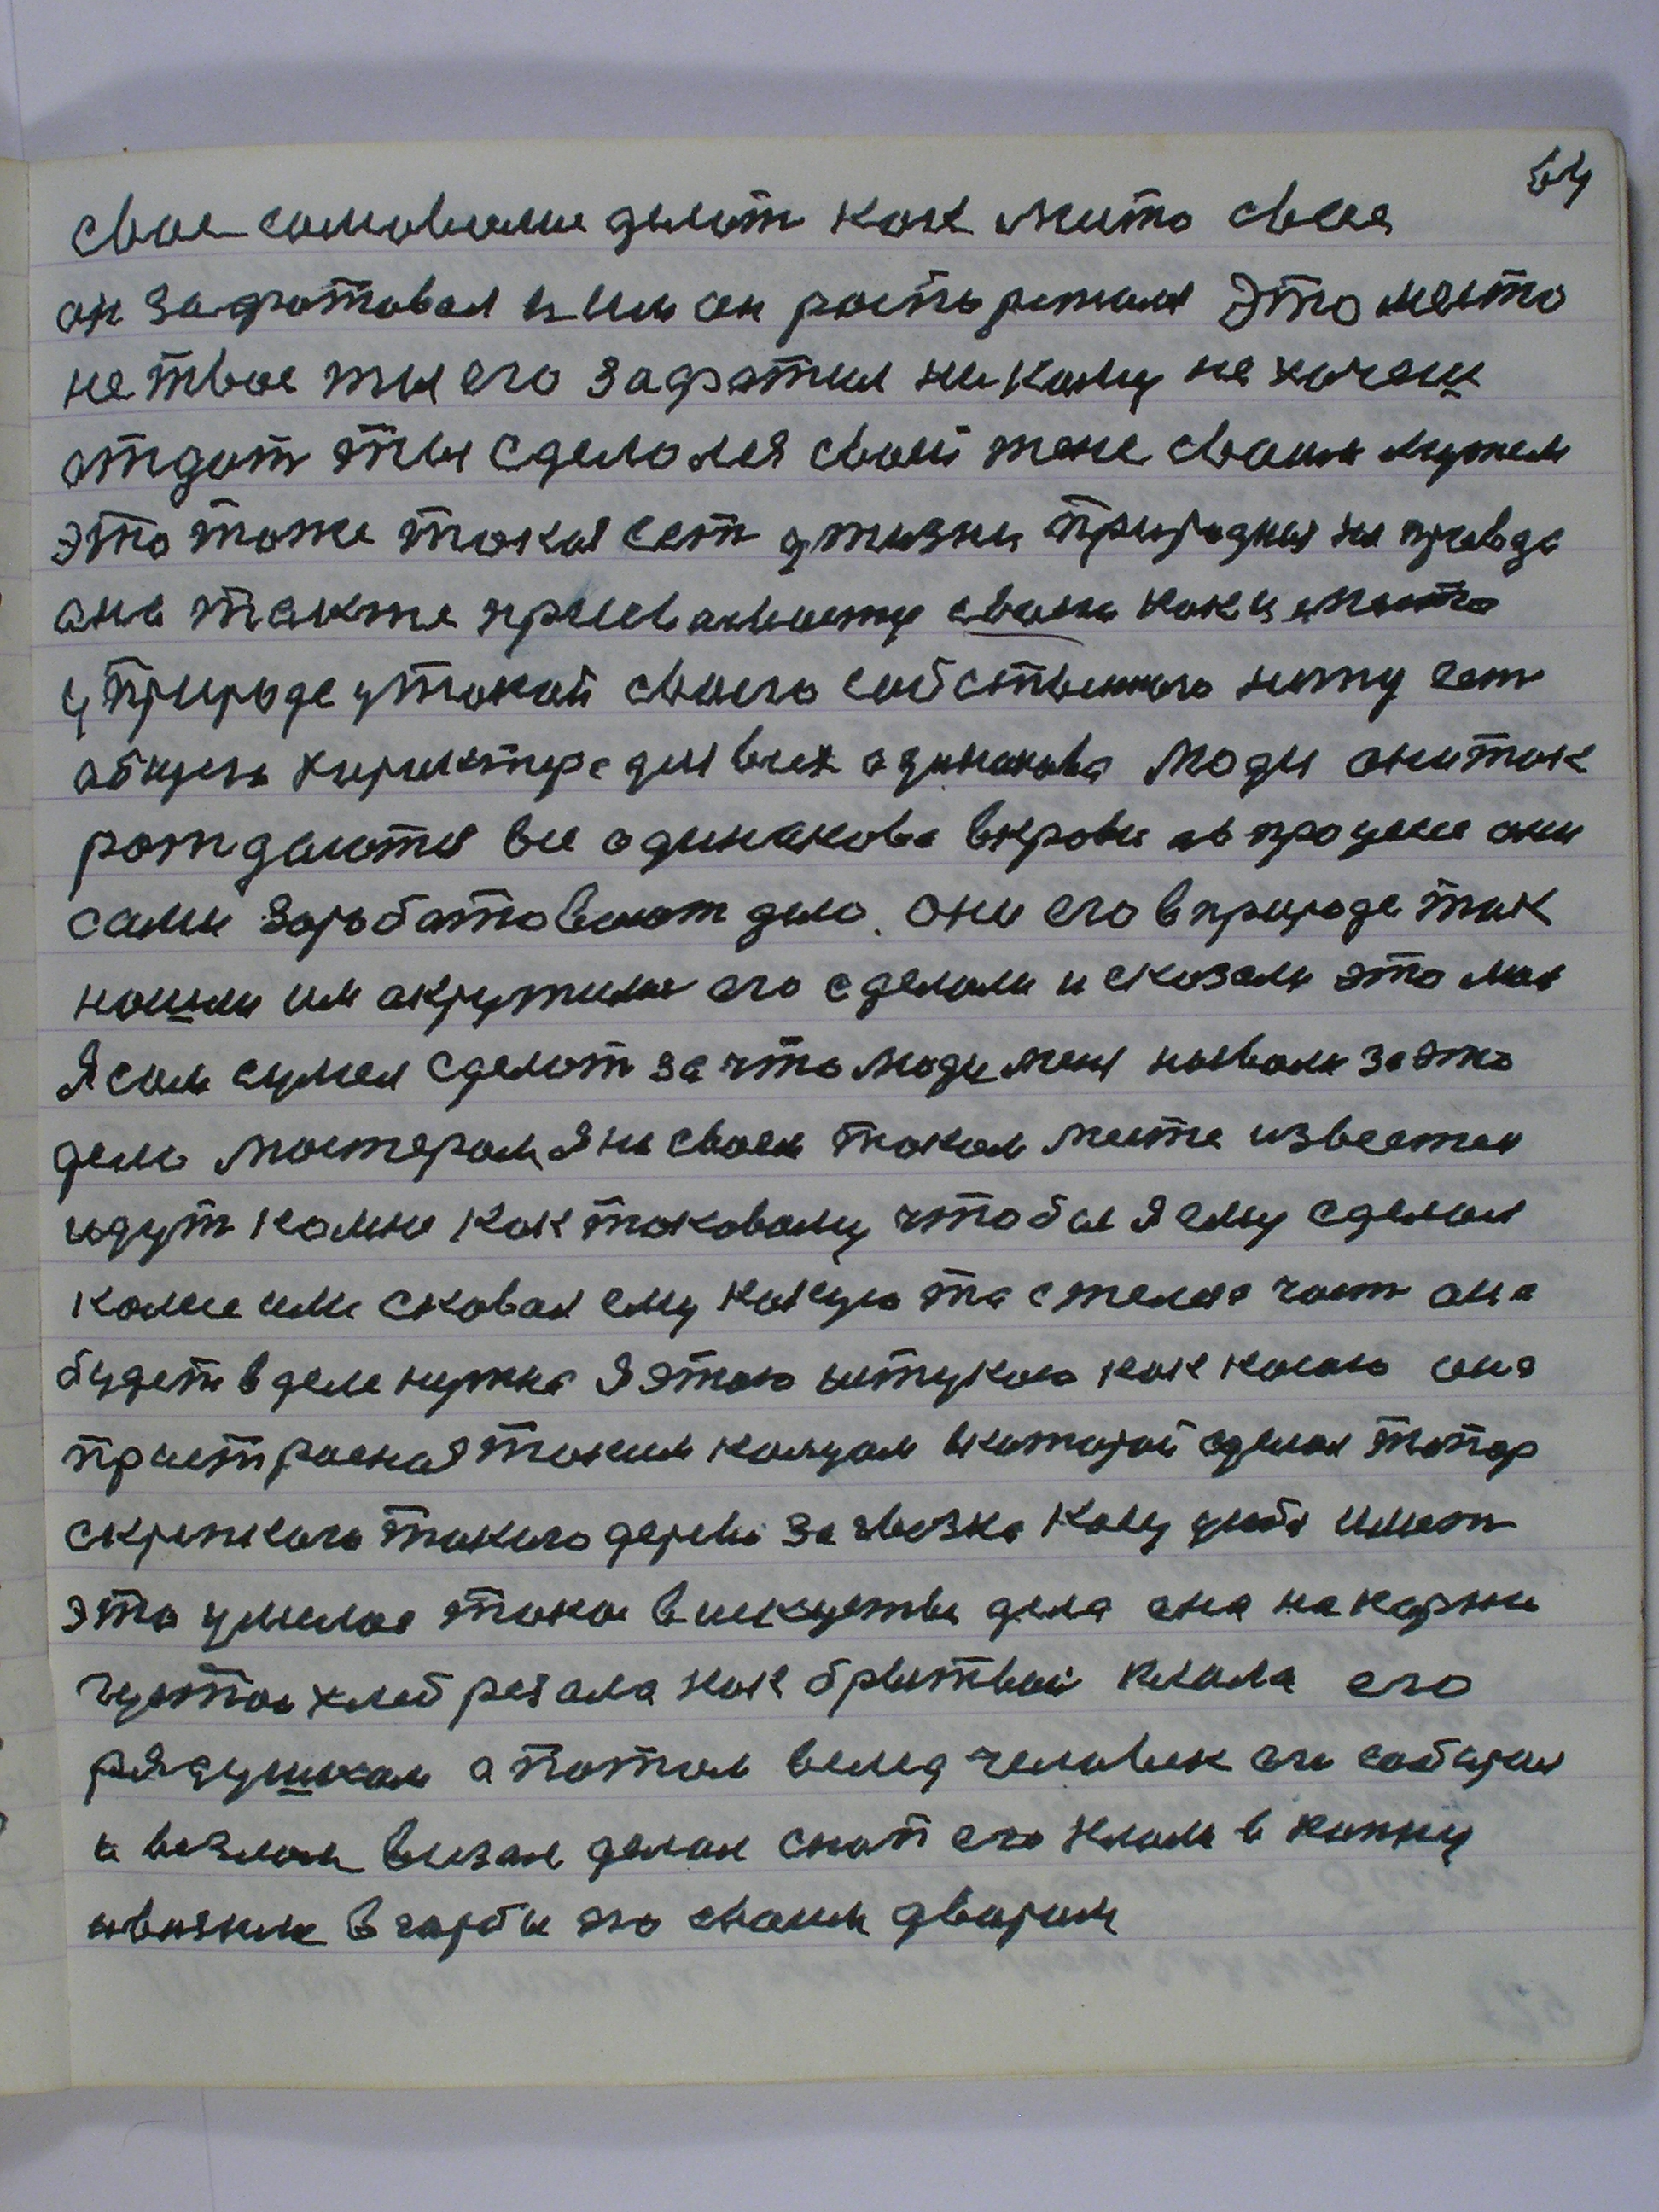 64
свое самовольие делат как место свое
он захватовал и им он распоряжался Это место
не твое ты его захватил никому не хочеш
отдат ты сделался свой жене своим мужем
это тоже такая ест у жизни природная не правда
она также присвоиному своим как и место
у природе у такой своего собственого нету ест
общего характера для всех одинаково Люди они так
рождаются все одинаково в крови а в процесе они
сами заробатовают дело. они его в природе так
нашли им окружили его сделали и сказали это мое
Я сам сумел сделат за что люди меня назвали за это
дело мастером, Я на своем таком месте известен
идут ко мне как таковому, чтобы я ему сделал
или сковал ему какую та част она
будет в деле нужна Я этою штукою как косою она
пристроеная таким колцом которой сделал топор
скрепкого такого дерева
это умелое такое в искуства дела она на корню
густой хлеб резала как бритвой клала его
рядушком а потом вслед человек его собирал
и вязал делал сноп его клал в копну
в гарбы его своим двором